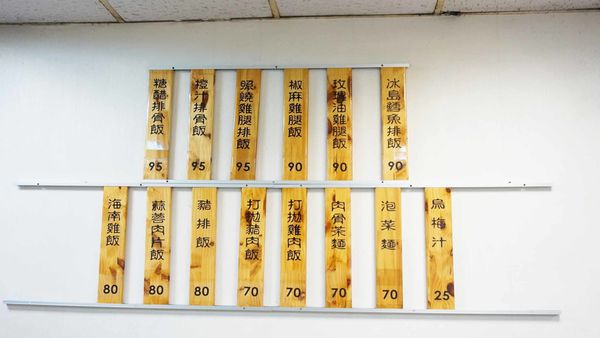 糖醋排骨飯
95
橙汁排骨飯
95
照燒雞腿排飯
95
椒麻雞腿飯
90
玫瑰油雞腿飯
90
冰島鱈魚排飯
90
海南雞飯
80
蒜蓉肉片飯
80
豬排飯
80
打拋豬肉飯
70
打拋雞肉飯
70
肉骨茶麵
70
泡菜麵
70
烏梅汁
25